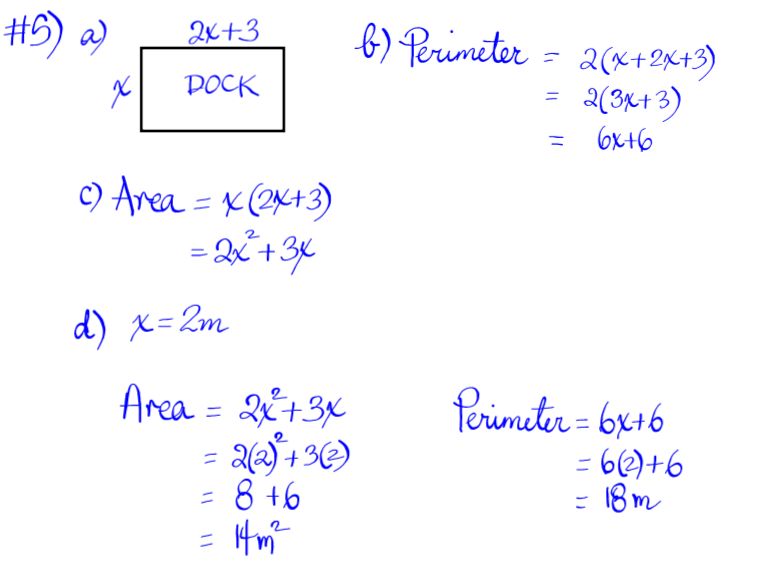 #5) a) 2x+3
x DOCK
b) Perimeter = 2(x+2x+3)
= 2(3x+3)
= 6x+6
c) Area = x(2x+3)
= 2x²+3x
d) x=2m
Area = 2x²+3x
= 2(2)²+3(2)
= 8+6
= 14m²
Perimeter = 6x+6
= 6(2)+6
= 18m